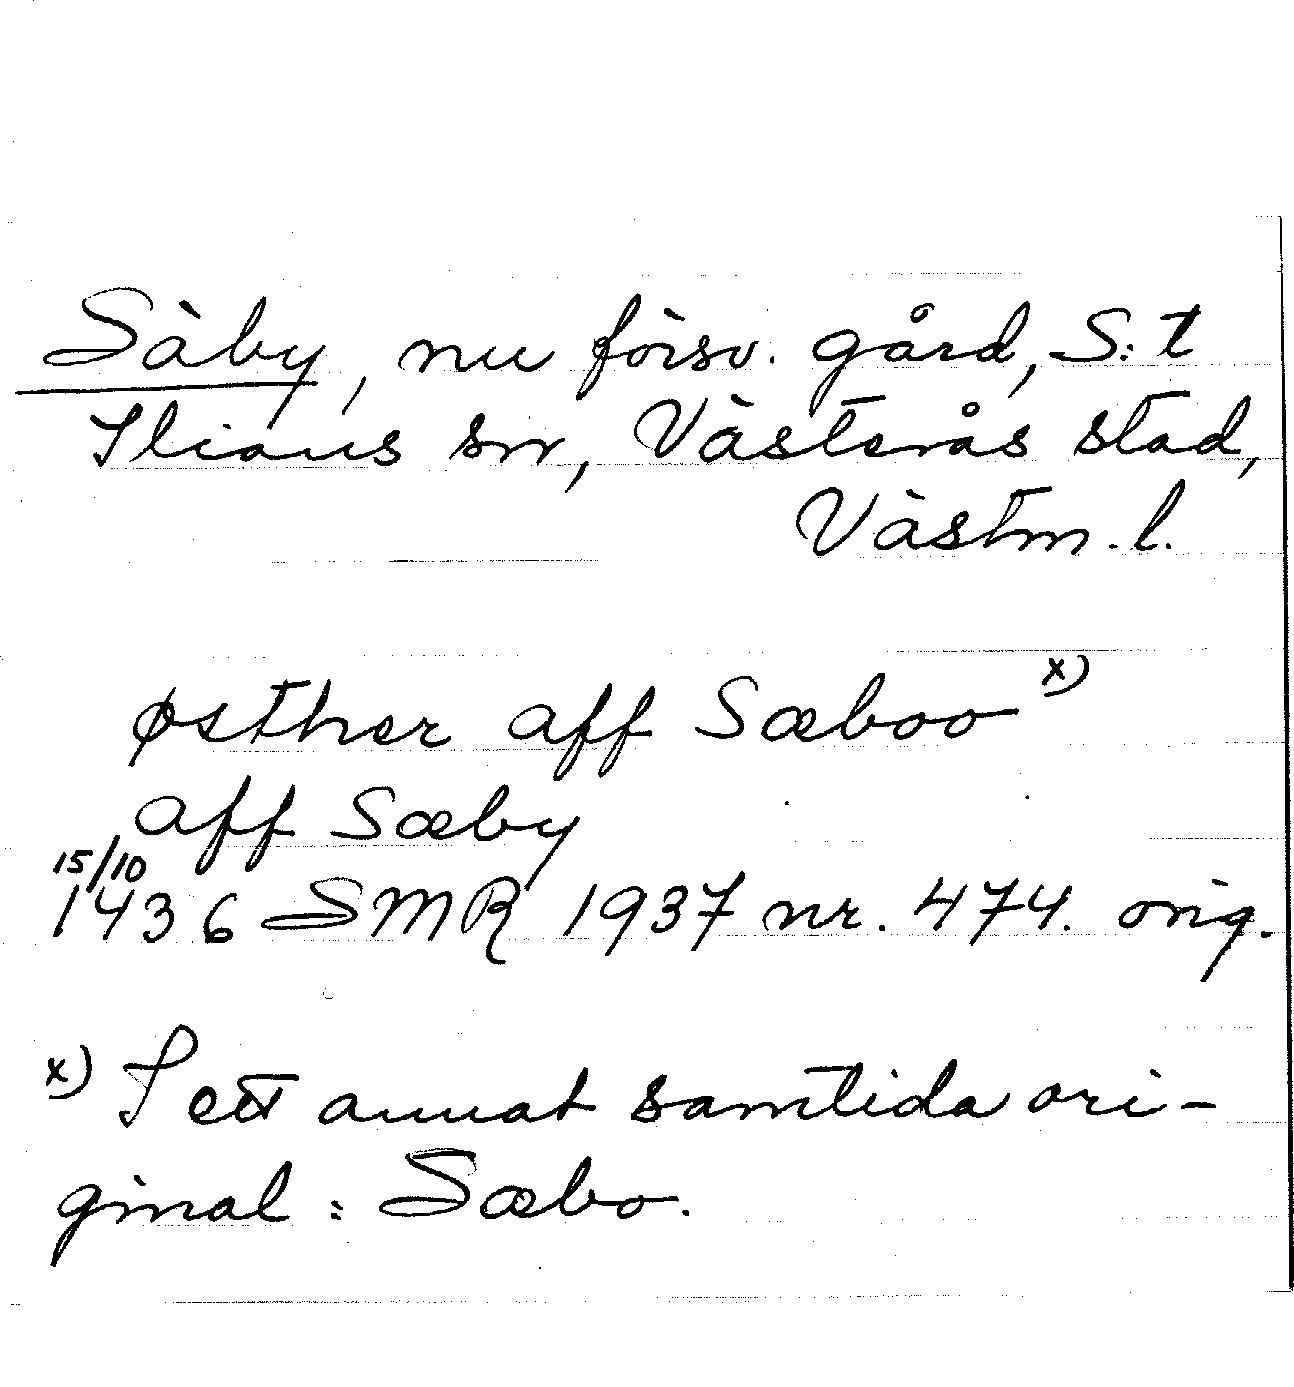 Säby, nu försv. gård, S:t
Ilians sn, Västerås stad,
Västm. l.
østher aff Sæboo x)
aff Sæby
15/10
1436 SMR 1937 nr. 474. orig.
x) I ett annat samtida ori-
ginal: Sæbo.